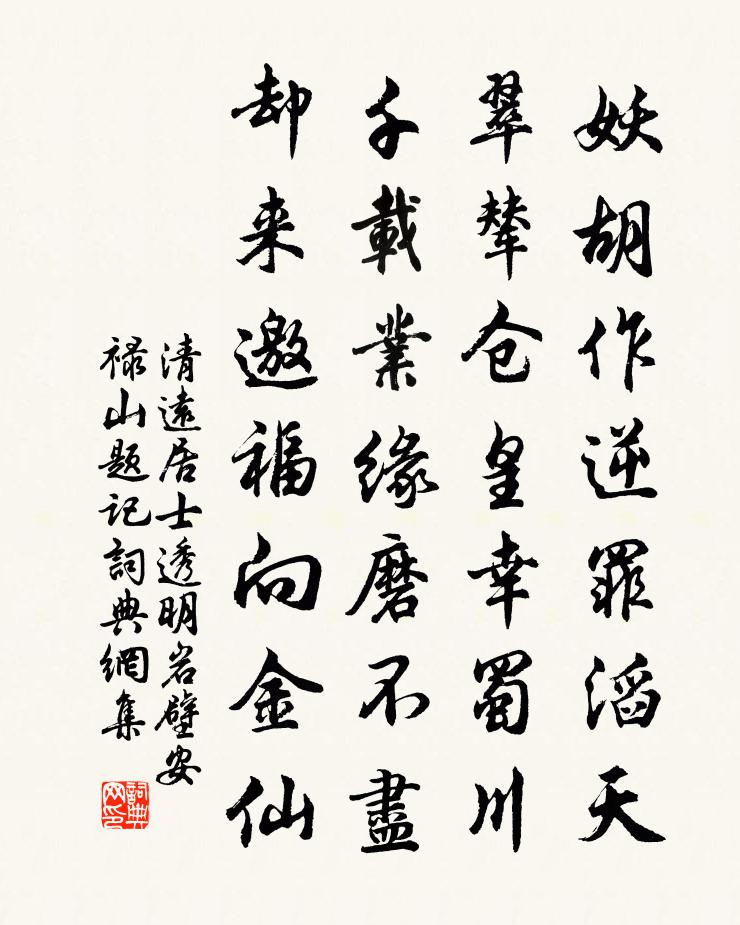 妖胡作逆罪滔天
翠辇仓皇幸蜀川
千載業緣磨不盡
却来邀福向金仙
清遠居士透明岩壁安
禄山题记詞典網集
詞典网印